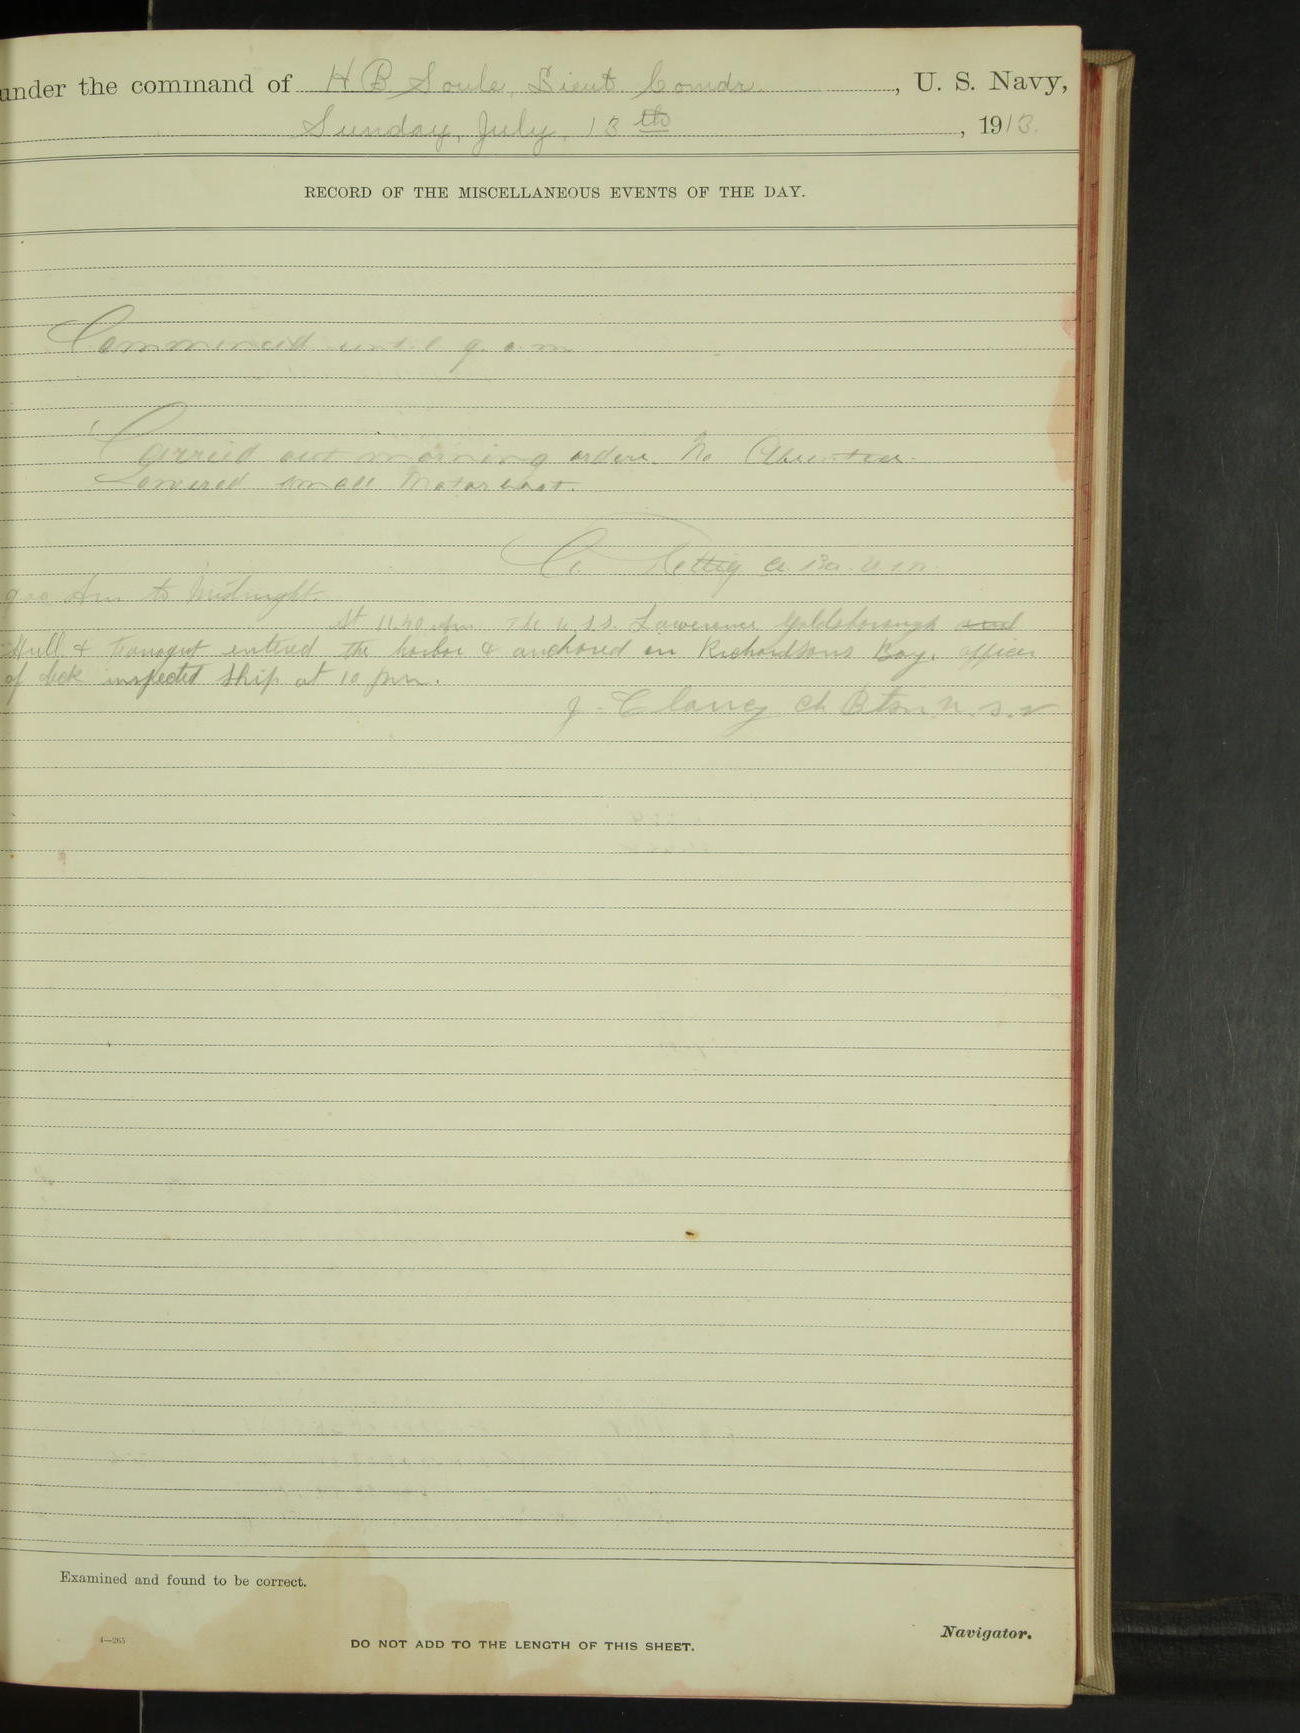 under the command of H B Soule, Lieut Comdr., U. S. Navy,
Sunday, July, 13th, 1913.
RECORD OF THE MISCELLANEOUS EVENTS OF THE DAY.
Commenced until 9. a. m
Carried out morning orders. No Absentees.
Lowered small Motorboat.
C. Rettig
9 00 Am to Midnight.
At 11.40 Am. The U.S.S. Lawerence Goldsborough and
Hull & Farragut entered the harbor & anchored in Richardsons Bay. officer
of deck inspected ship at 10 pm.
J. Clancy Ch Btsn U.S.N
Examined and found to be correct.
4—265
DO NOT ADD TO THE LENGTH OF THIS SHEET.
Navigator.